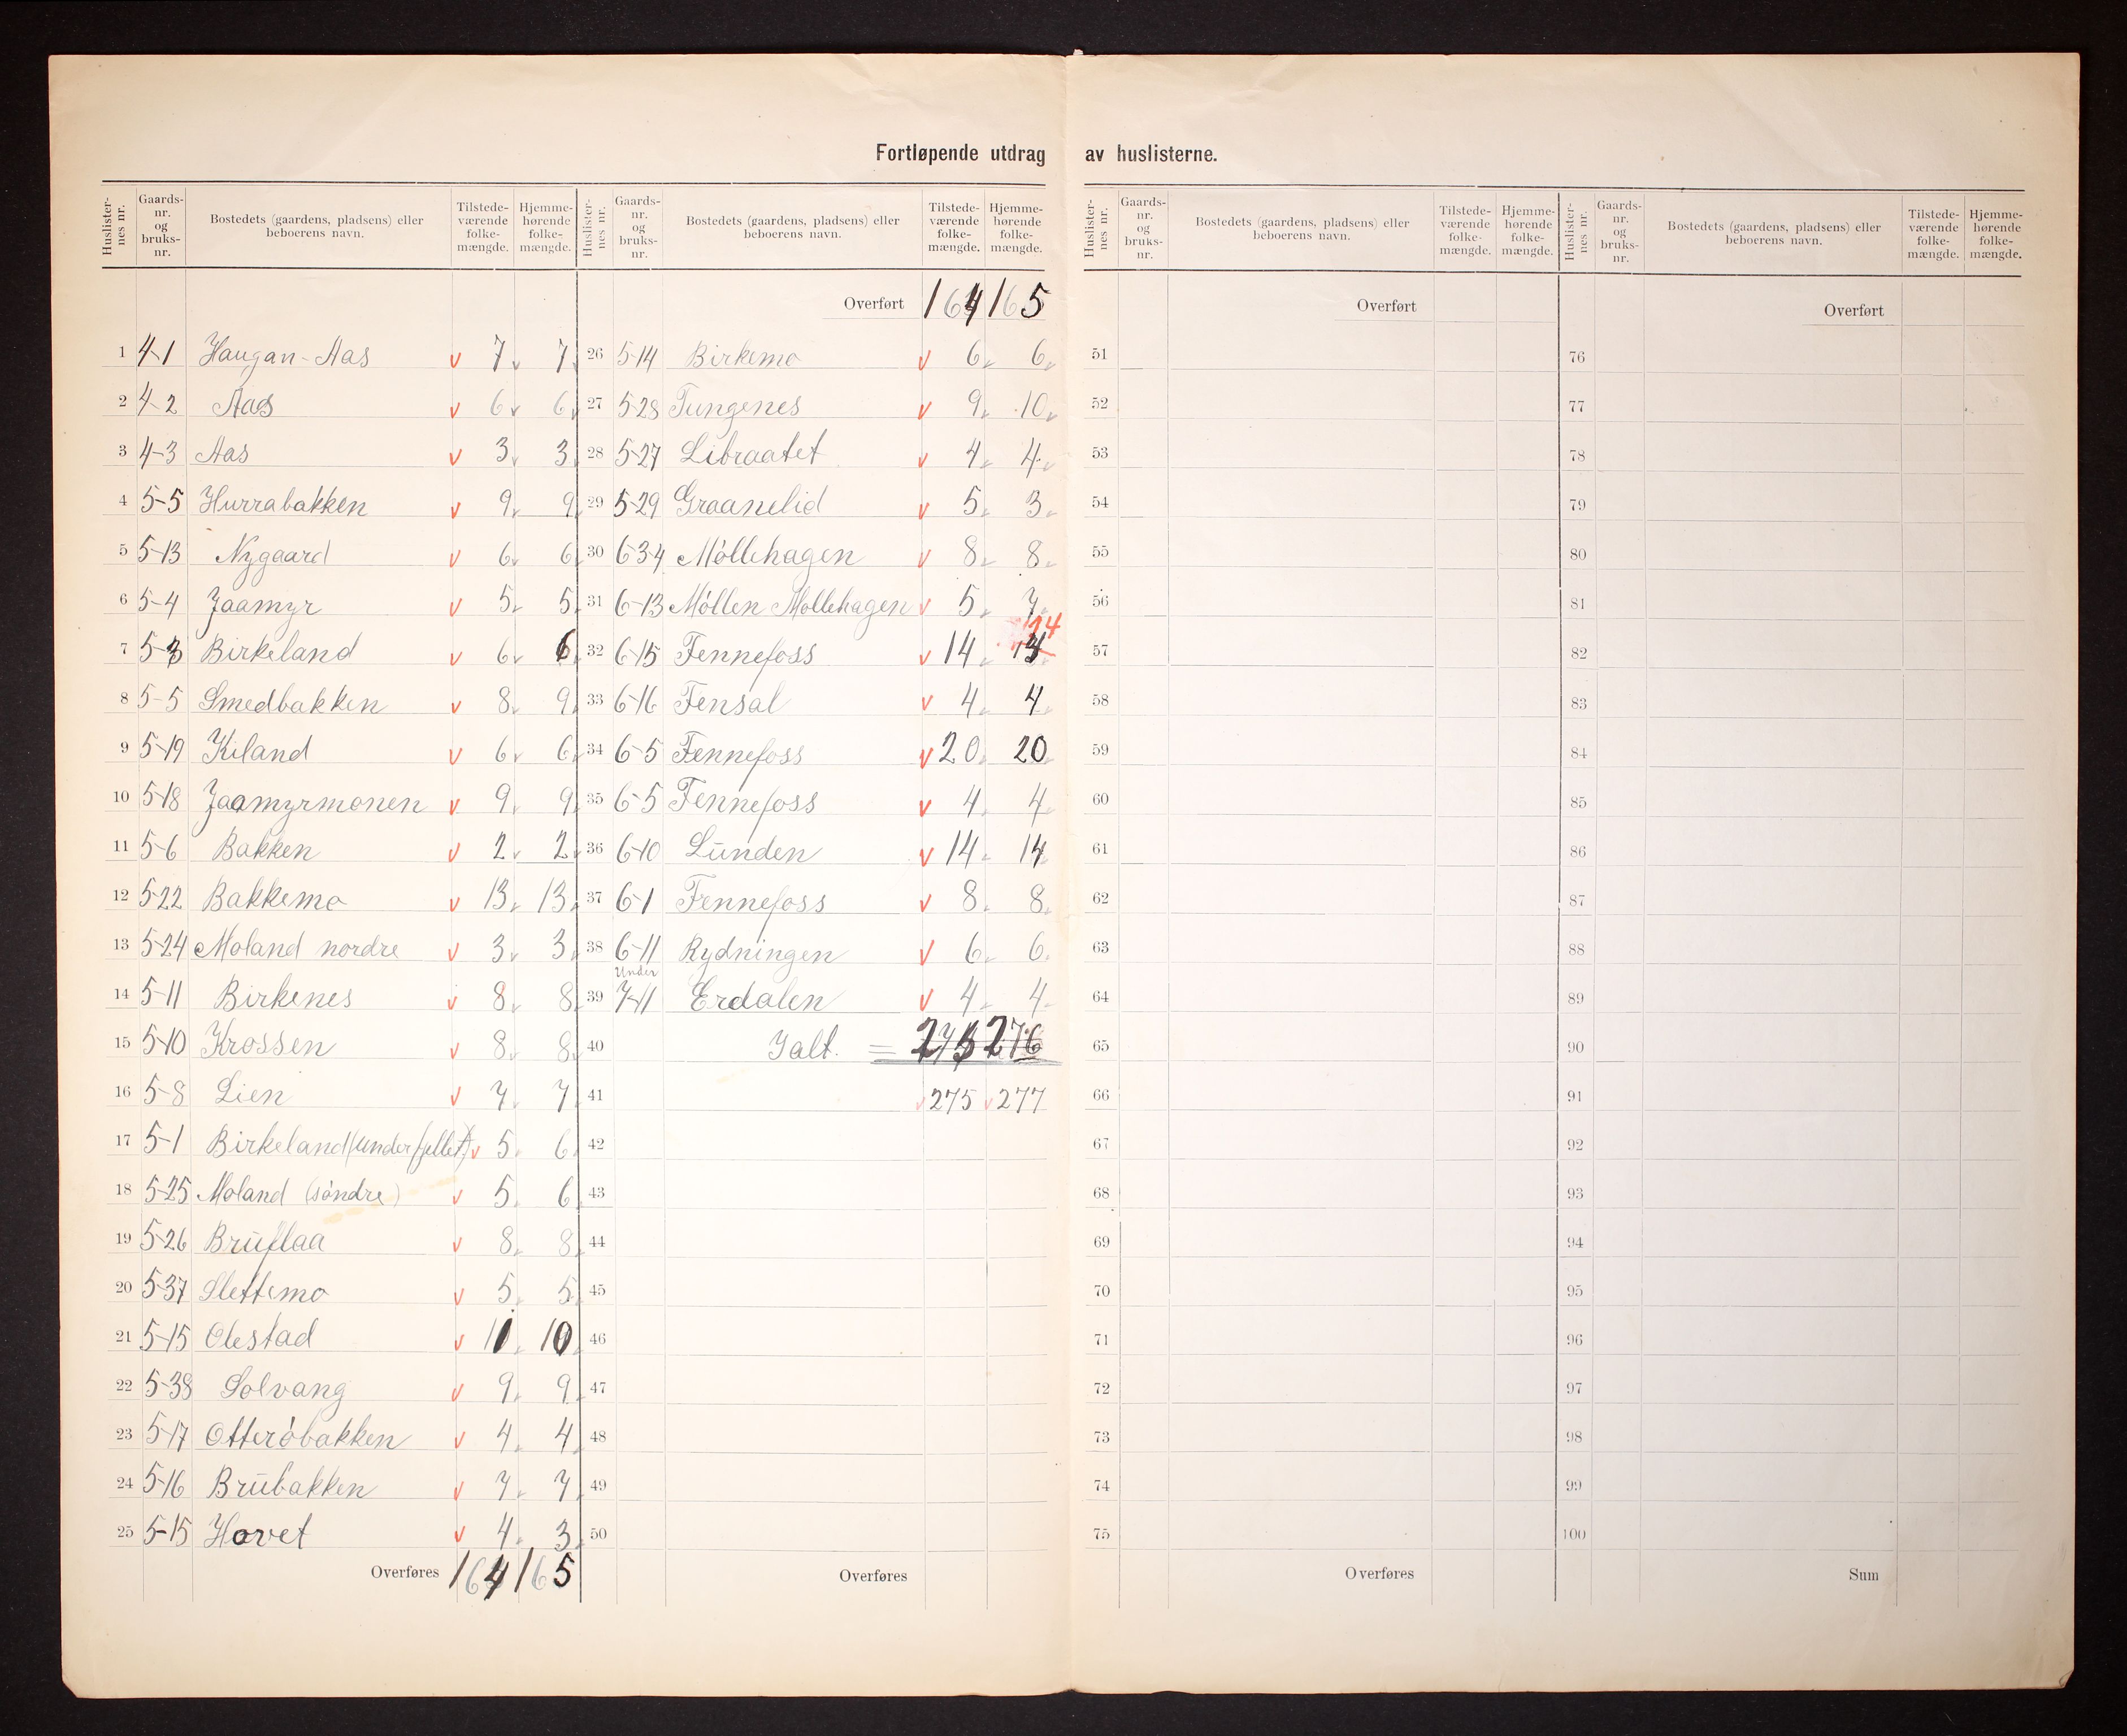 Fortløpende utdrag av huslisterne.
Huslister-nes nr. Gaards-nr. og bruks-nr. Bostedets (gaardens, pladsens) eller beboerens navn. Tilstede-værende folke-mængde. Hjemme-hørende folke-mængde.
1 4-1 Haugan-Aas v 7 7
2 4-2 Aas v 6 6
3 4-3 Aas v 3 3
4 5-5 Hurrabakken v 9 9
5 5-13 Nygaard v 6 6
6 5-4 Jaamyr v 5 5
7 5-3 Birkeland v 6 6
8 5-5 Smedbakken v 8 9
9 5-19 Kiland v 6 6
10 5-18 Jaamyrmonen v 9 9
11 5-6 Bakken v 2 2
12 5-22 Bakkemo v 13 13
13 5-24 Moland nordre v 3 3
14 5-11 Birkenes v 8 8
15 5-10 Krossen v 8 8
16 5-8 Lien v 7 7
17 5-1 Birkeland (under fjellet) v 5 6
18 5-25 Moland (söndre) v 5 6
19 5-26 Bruflaa v 8 8
20 5-37 Slettemo v 5 5
21 5-15 Olestad v 11 10
22 5-38 Solvang v 9 9
23 5-17 Otteröbakken v 4 4
24 5-16 Brubakken v 7 7
25 5-15 Hovet v 4 3
Overføres 164 165
Huslister-nes nr. Gaards-nr. og bruks-nr. Bostedets (gaardens, pladsens) eller beboerens navn. Tilstede-værende folke-mængde. Hjemme-hørende folke-mængde.
Overført 164 165
26 5-14 Birkemo v 6 6
27 5-28 Tungenes v 9 10
28 5-27 Libraatet v 4 4
29 5-29 Graanelid v 5 3
30 6-34 Möllehagen v 8 8
31 6-13 Möllen Mollehagen v 5 7
14
32 6-15 Fennefoss v 14
33 6-16 Fensal v 4 4
34 6-5 Fennefoss v 20 20
35 6-5 Fennefoss v 4 4
36 6-10 Lunden v 14 14
37 6-1 Fennefoss v 8 8
38 6-11 Rydningen v 6 6
Under
39 7-11 Erdalen v 4 4
40 Ialt. = 276
41 v 275 v 277
42
43
44
45
46
47
48
49
50
Overføres
Huslister-nes nr. Gaards-nr. og bruks-nr. Bostedets (gaardens, pladsens) eller beboerens navn. Tilstede-værende folke-mængde. Hjemme-hørende folke-mængde.
Overført
51
52
53
54
55
56
57
58
59
60
61
62
63
64
65
66
67
68
69
70
71
72
73
74
75
Overføres
Huslister-nes nr. Gaards-nr. og bruks-nr. Bostedets (gaardens, pladsens) eller beboerens navn. Tilstede-værende folke-mængde. Hjemme-hørende folke-mængde.
Overført
76
77
78
79
80
81
82
83
84
85
86
87
88
89
90
91
92
93
94
95
96
97
98
99
100
Sum